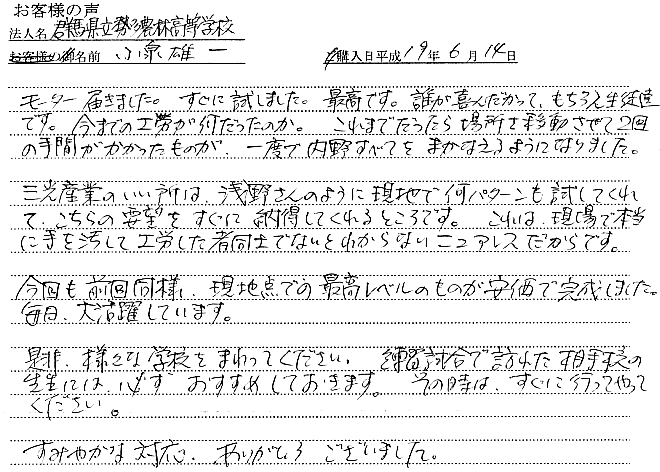 お客様の声
法人名 群馬県立勢多農林高等学校
お客様の御名前 小泉雄一 ご購入日平成19年6月14日
モーター届きました。すぐに試しました。最高です。誰が喜んだかって、もちろん生徒達
です。今までの工労が何だったのか。これまでだったら場所を移動させて2回
の手間がかかったものが、一度で内野すべてをまかなえるようになりました。
三光産業のいい所は、浅野さんのように現地で何パターンも試してくれ
て、こちらの要望をすぐに納得してくれるところです。これは、現場で本当
に手を汚して工労した者同士でないとわからないニュアンスだからです。
今回も前回同様、現地点での最高レベルのものが安価で完成しました。
毎日、大活躍しています。
是非、様々な学校をまわってください。練習試合で訪れた相手校の
先生には、必ずおすすめしておきます。その時は、すぐに行ってやって
ください。
すみやかな対応、ありがとうございました。